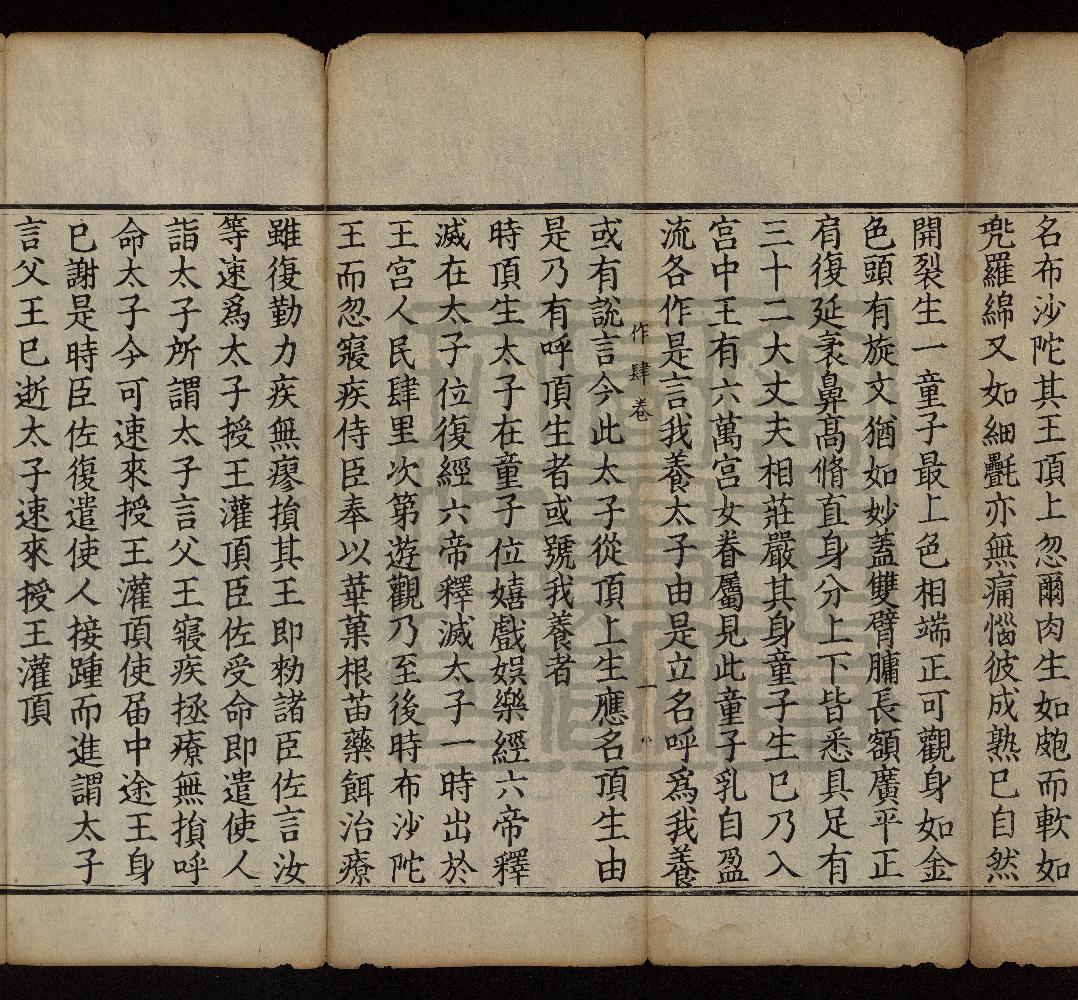 名布沙陀其王頂上忽爾肉生如皰而軟如
兠羅綿又如細㲲亦無痛惱彼成熟已自然
開裂生一童子最上色相端正可觀身如金
色頭有旋文猶如妙蓋雙臂𦟛長額廣平正
肩復延袤鼻高脩直身分上下皆悉具足有
三十二大丈夫相莊嚴其身童子生已乃入
宫中王有六萬宫女眷屬見此童子乳自盈
流各作是言我養太子由是立名呼爲我養
作肆卷
一
或有說言今此太子從頂上生應名頂生由
是乃有呼頂生者或號我養者
時頂生太子在童子位嬉戲娛樂經六帝釋
滅在太子位復經六帝釋滅太子一時出於
王宫人民肆里次第遊觀乃至後時布沙陀
王而忽寢疾侍臣奉以華菓根苗藥餌治療
雖復勤力疾無瘳損其王即勑諸臣佐言汝
等速爲太子授王灌頂臣佐受命即遣使人
詣太子所謂太子言父王寢疾拯療無損呼
命太子今可速來授王灌頂使届中途王身
已謝是時臣佐復遣使人接踵而進謂太子
言父王已逝太子速來授王灌頂